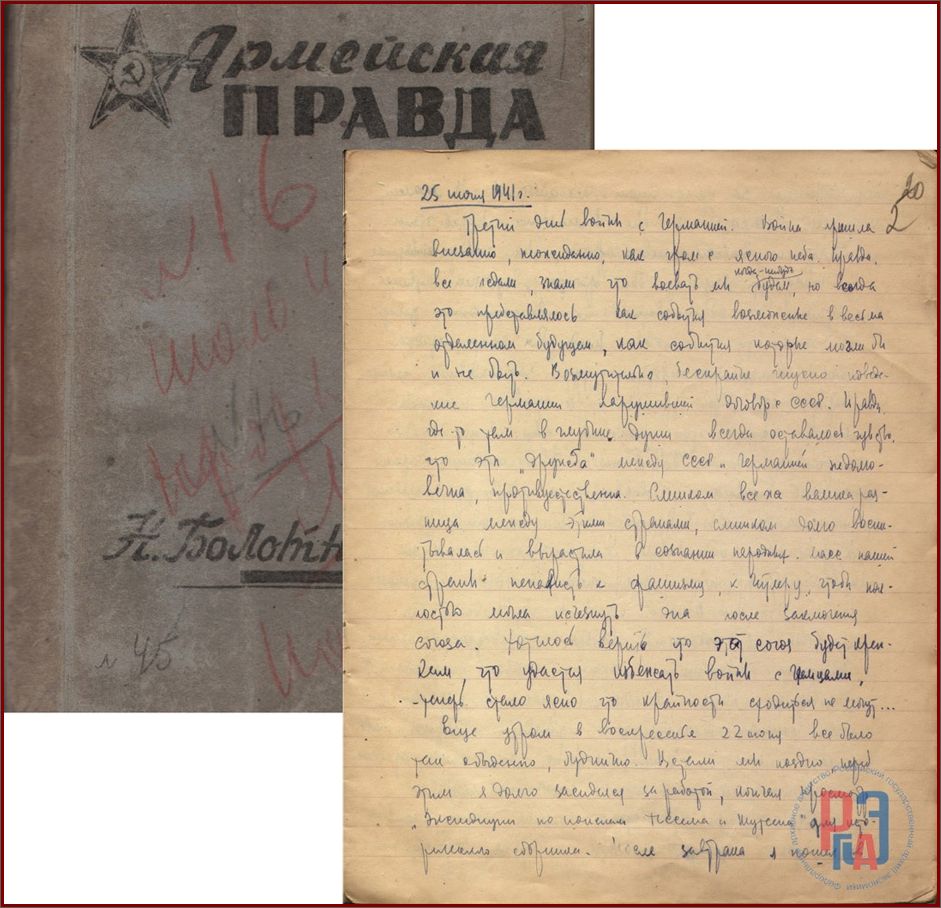 Армейская
ПРАВДА
№ 16
июль
Н. Болотн
№ 45
20
2
25 июня 1941 г.
Третий день войны с Германией. Война пришла
внезапно, неожиданно, как гром с ясного неба. Правда,
когда-нибудь
все ждали, знали что воевать мы будем, но всегда
это представлялось как событие возможное в весьма
отдаленном будущем, как события которые могли бы
и не быть. Возмутительно, бескрайне гнусно поведе-
ние Германии нарушившей договор с СССР. Правда,
где-то там в глубине души всегда оставалось чувство,
что эта "дружба" между СССР и Германией недолго-
вечна, противоестественна. Слишком все же велика раз-
ница между этими странами, слишком долго воспи-
тывалась и вырастала в сознании народных масс нашей
страны ненависть к фашизму, к Гитлеру, чтобы пол-
ностью могла исчезнуть она после заключения
союза. Хотелось верить что этот союз будет креп-
ким, что удастся избежать войны с немцами,
теперь стало ясно что крайности сходиться не могут...
Еще утром в воскресенье 22 июня все было
так обыденно, буднично. Встали мы поздно, перед
этим я долго засиделся за работой, кончал просмотр
"Экспедиции по поискам Тессема и Кнутсена" для
сборника. После завтрака я пошел в
РГАЭ
Федеральное архивное агентство Российский государственный архив экономики